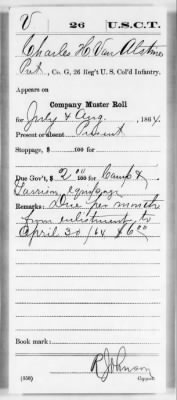 V 26 U.S.C.T.
Charles H. Van Alstine
Pvt., Co. G, 26 Reg't U. S. Col'd Infantry.
Appears on
Company Muster Roll
for July & Aug., 1864
Present or absent Present
Stoppage, $ 100 for
Due Gov't, $ 2 00/100 for Camp &
Garrison Equipage
Remarks: Due per month
from enlistment to
April 30/64 $6 00
Book mark:
R Johnson
(358) Copyist.